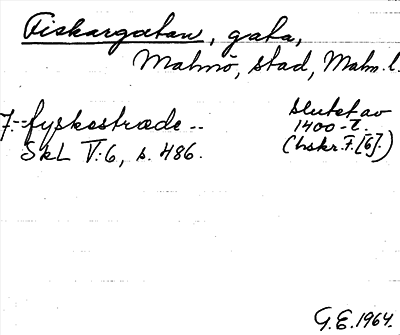 Fiskargatan, gata,
Malmö, stad, Malm. l.
7. -- fyskestræde --
slutet av
1400-t.
SkL V:6, s. 486.
(hskr. F. [6].)
G.E. 1964.